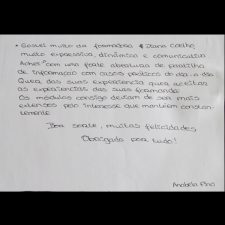 • Gostei muito da formadora Diana Coelho,
muito expressiva, dinâmica e comunicativa
Achei com uma forte abertura de partilha
de informação com casos práticos do dia-a-dia
Quer das suas experiencia quer aceitar
as experiencias das suas formanda
Os módulos consigo deviam de ser mais
extensos pelo interesse que mantém constan-
temente
Boa sorte, muitas felicidades,
Obrigado por tudo!
Anabela Pino